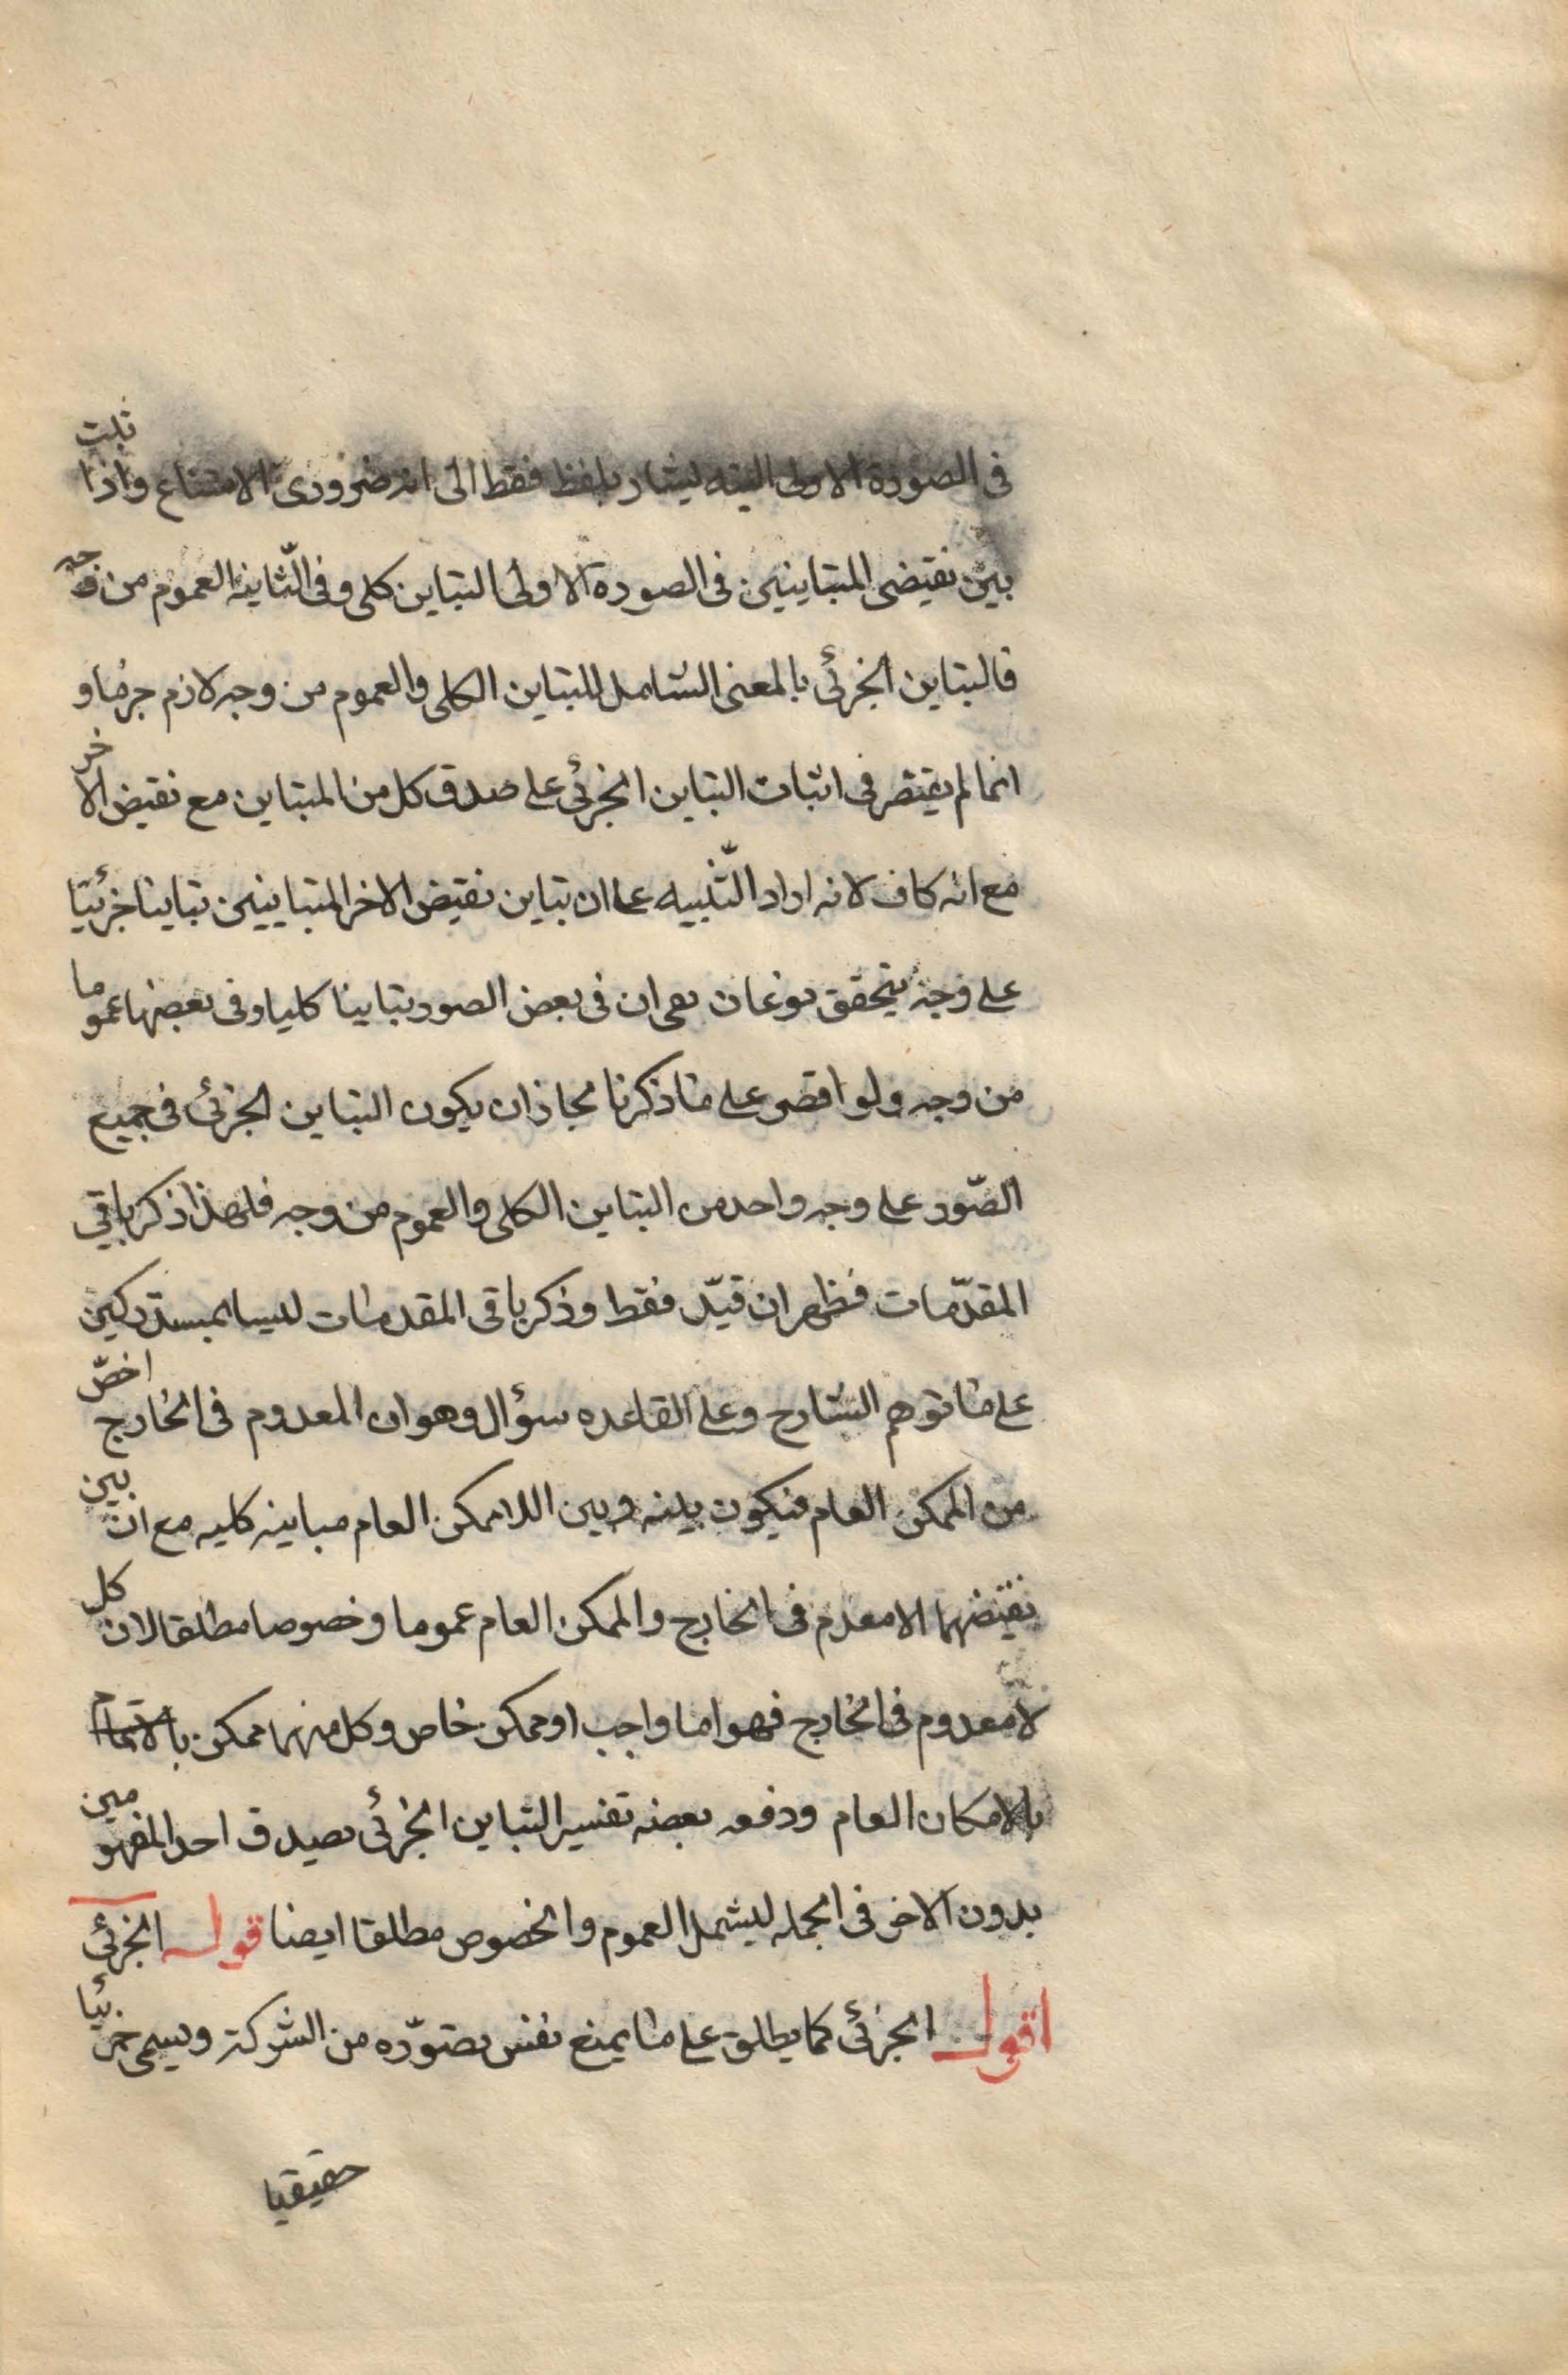 فى الصورة الاولى البته ليشار بلفظ فقط الى انه ضرورى الامتناع واذا ثبت
بين نقيضى المتباينين فى الصورة الاولى التباين كلى وفى الثانية العموم من وجه
فالتباين الجزئى بالمعنى الشامل للتباين الكلى والعموم من وجه لازم جزما و
انما لم يقتصر فى اثبات التباين الجزئى على صدق كل من المتباين مع نقيض الاخر
مع انه كاف لانه اراد التنبيه على ان تباين نقيض الاخر المتباينين تباينا جزئيا
على وجه يتحقق نوعان بمعى ان فى بعض الصور تباينا كليا وفى بعضها عموما
من وجه ولو اقصر على ما ذكرنا لجاز ان يكون التباين الجزئى فى جميع
الصّور على وجه واحد من التباين الكلى والعموم من وجه فلهذا ذكر باقى
المقدّمات فظهر ان قيّد فقط وذكر باقى المقدمات ليسا بمستدركين
على ما توهم الشارح وعلى القاعده سؤال وهو ان المعدوم فى الخارج اخصّ
من الممكن العام فيكون بينه وبين اللاممكن العام مباينه كليه مع ان بين
نقيضهما الامعدم فى الخارج والممكن العام عموما وخصوصا مطلقا لان كل
لامعدوم فى الخارج فهو اما واجب او ممكن خاص وكل منهما ممكن
بالامكان العام ودفعه بعضه تفسير التباين الجزئى بصدق احد المفهومين
بدون الاخر فى الجمله ليشمل العموم والخصوص مطلقا ايضا قوله الجزئى
اقول الجزئى كما يطلق على ما يمنع نفس تصوّره من الشركة ويسمى جزئيا
حقيقيا